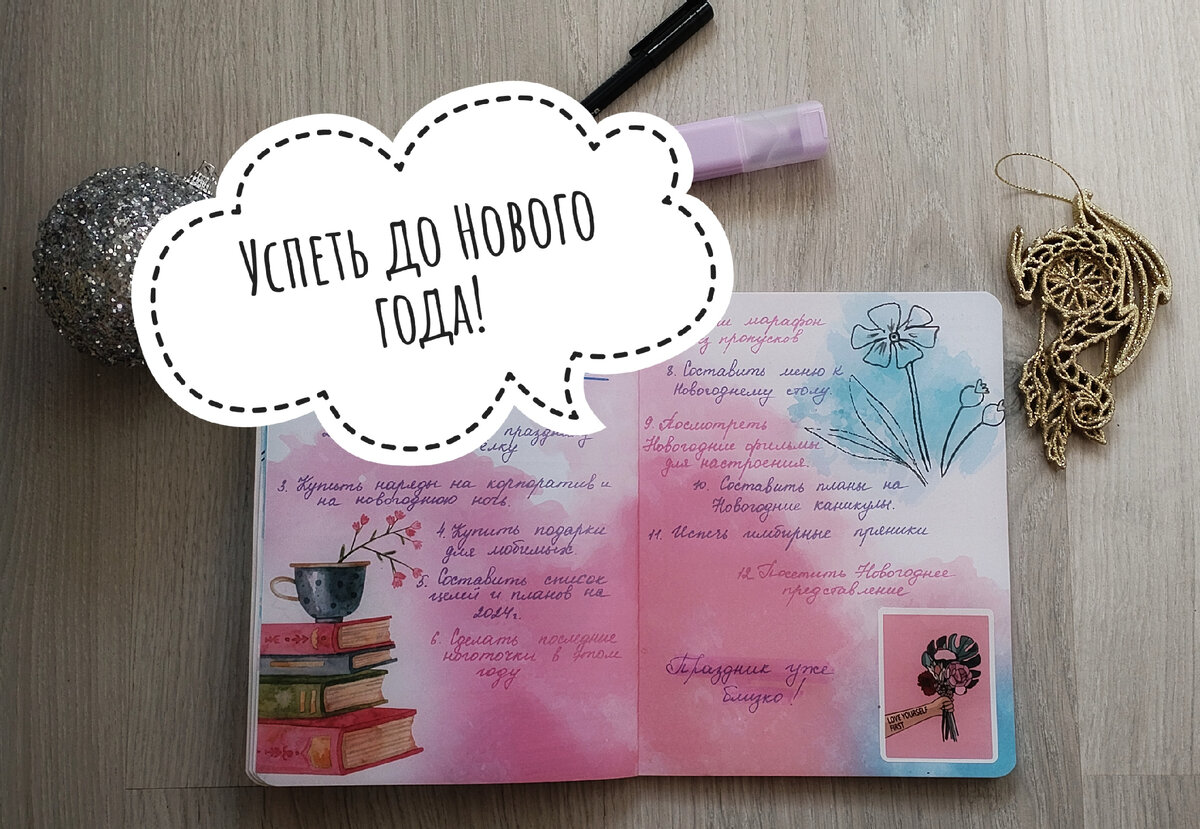 Успеть до Нового
года!
праздничную
ёлку
3. Купить наряды на корпоратив и
на новогоднюю ночь.
4. Купить подарки
для любимых.
5. Составить список
целей и планов на
2024г.
6. Сделать последние
ноготочки в этом
году
марафон
пропусков
8. Составить меню к
Новогоднему столу.
9. Посмотреть
Новогодние фильмы
для настроения.
10. Составить планы на
Новогодние каникулы.
11. Испечь имбирные пряники
12. Посетить Новогоднее
представление
Праздник уже
близко!
LOVE YOURSELF
FIRST